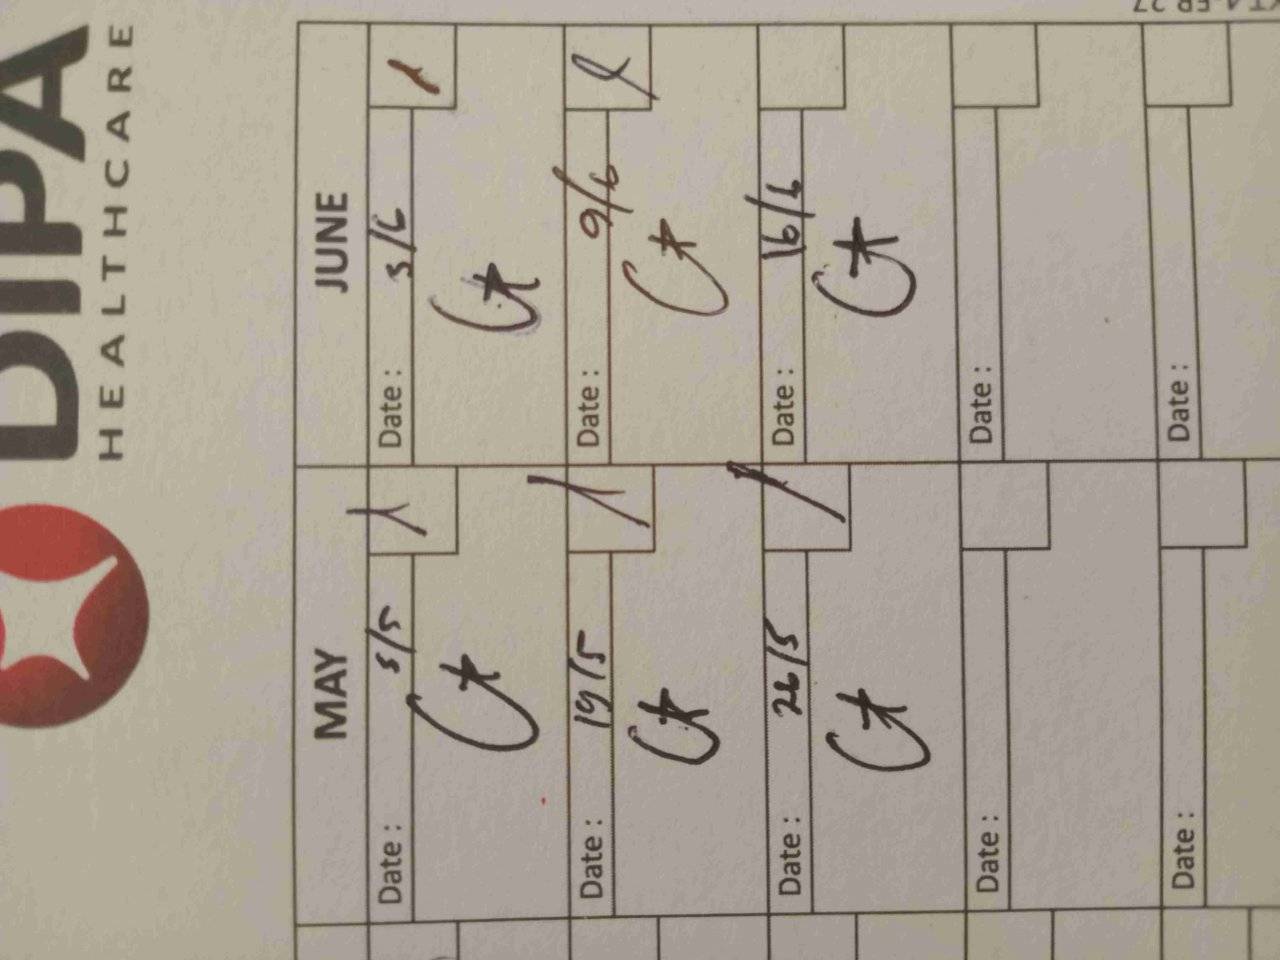 DIPA
HEALTHCARE
MAY
JUNE
Date : 5/5
Date : 3/6
Date : 19/5
Date : 9/6
Date : 26/5
Date : 16/6
Date :
Date :
Date :
Date :